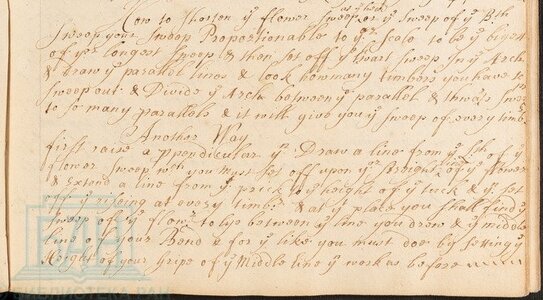 How to Shorten yͤ flower Sweep or yͤ Sweep of yͤ Bth
as yͤ
Sweep your Sweep Proportionable to yͤ Scale to be yͤ bigest
of yͤ Longest Sweep & then set off yͤ Sweep In yͤ Arch
& draw yͤ parallel lines & look how many timbers you have to
sweep out & Divide yͤ Arch between yͤ parallel &
to so many parallels & it will give you yͤ Sweep of every timb
Another Way
first raise a Ppendicular yͤ Draw a line from yͤ of yͤ
flower Sweep wch you must set off upon yͤ of yͤ flower
& Extend a line from yͤ prick yͤ height of yͤ tuck & yͤ set
off yͤ riseing at every timber & at yͤ place you shall find yͤ
Sweep of yͤ to lye between yͤ line you drew & yͤ middle
line of your Bend & for yͤ like you must doe by setting yͤ
Height of your Gripe of yͤ Middle line yͤ work as before
БАН
БИБЛИОТЕКА РАН